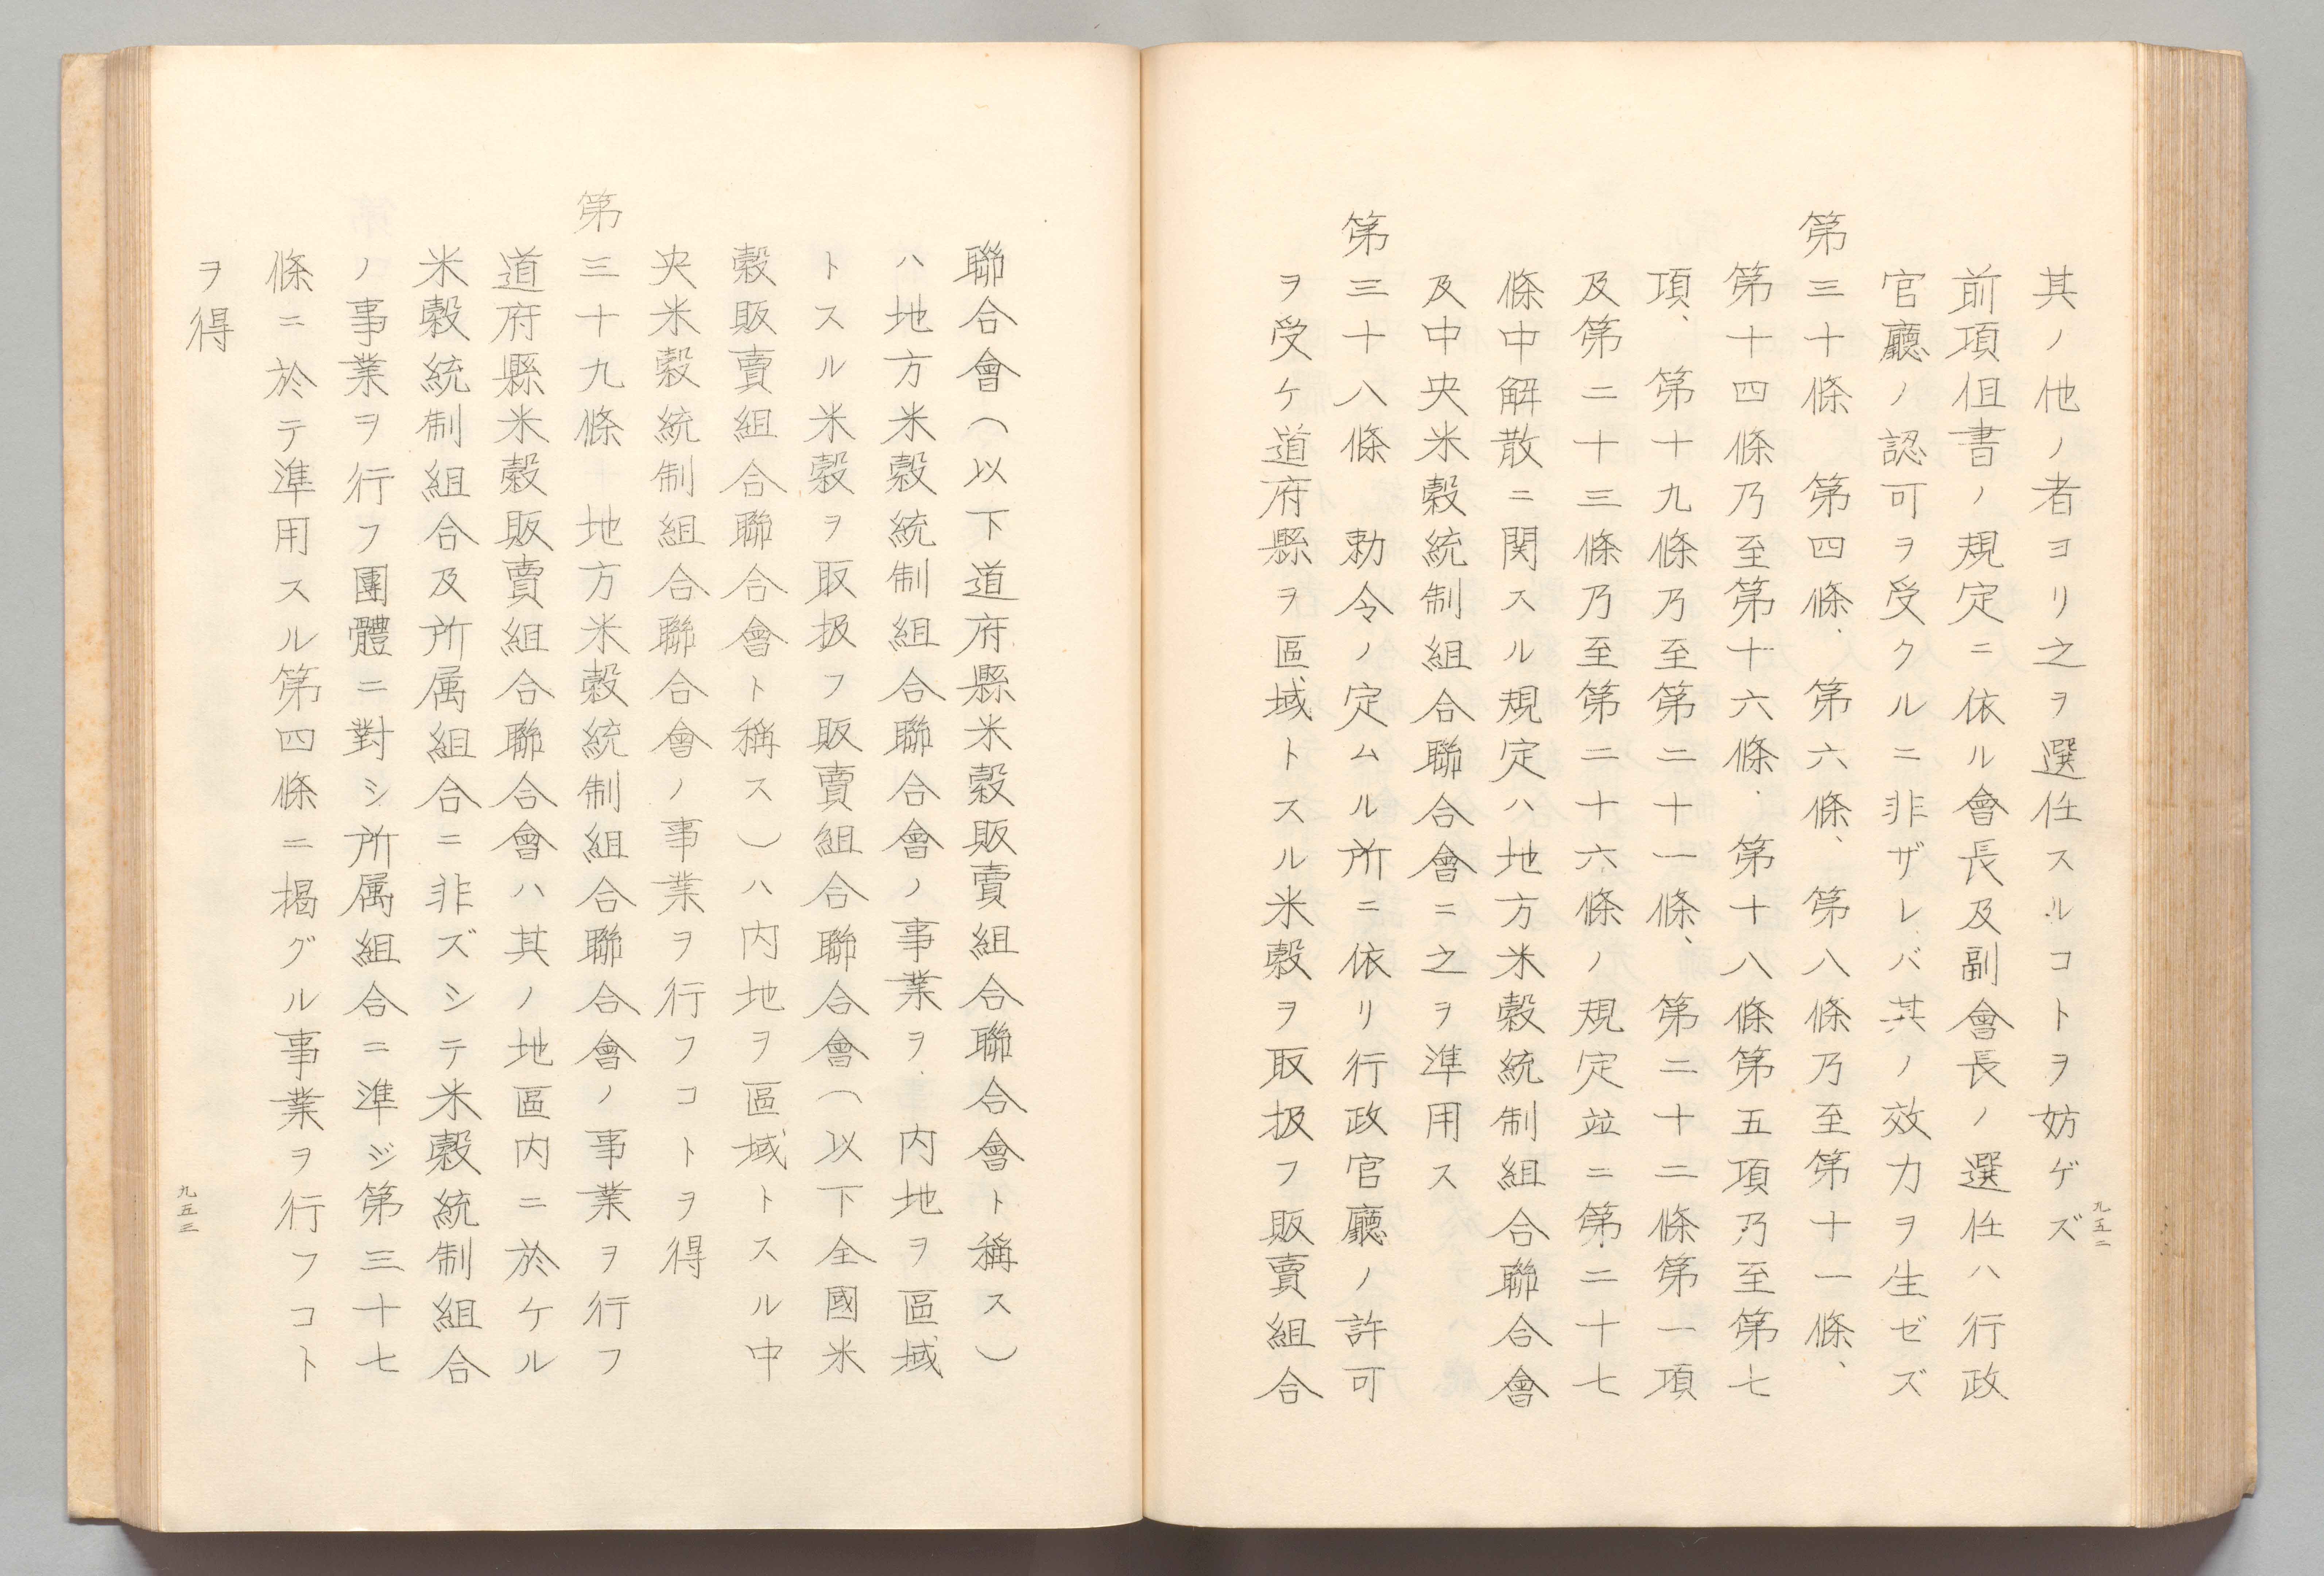 其ノ他ノ者ヨリ之ヲ選任スルコトヲ妨ゲズ
前項但書ノ規定ニ依ル會長及副會長ノ選任ハ行政
官廳ノ認可ヲ受クルニ非ザレバ其ノ效力ヲ生ゼズ
第三十條　第四條、第六條、第八條乃至第十一條、
第十四條乃至第十六條、第十八條第五項乃至第七
項、第十九條乃至第二十一條、第二十二條第一項
及第二十三條乃至第二十六條ノ規定竝ニ第二十七
條中解散ニ関スル規定ハ地方米穀統制組合聯合會
及中央米穀統制組合聯合會ニ之ヲ準用ス
第三十八條　勅令ノ定ムル所ニ依リ行政官廳ノ許可
ヲ受ケ道府縣ヲ區域トスル米穀ヲ取扱フ販賣組合
九五二
聯合會（以下道府縣米穀販賣組合聯合會ト稱ス）
ハ地方米穀統制組合聯合會ノ事業ヲ、內地ヲ區域
トスル米穀ヲ取扱フ販賣組合聯合會（以下全國米
穀販賣組合聯合會ト稱ス）ハ內地ヲ區域トスル中
央米穀統制組合聯合會ノ事業ヲ行フコトヲ得
第三十九條　地方米穀統制組合聯合會ノ事業ヲ行フ
道府縣米穀販賣組合聯合會ハ其ノ地區內ニ於ケル
米穀統制組合及所属組合ニ非ズシテ米穀統制組合
ノ事業ヲ行フ團體ニ對シ所属組合ニ準ジ第三十七
條ニ於テ準用スル第四條ニ揭グル事業ヲ行フコト
ヲ得
九五三